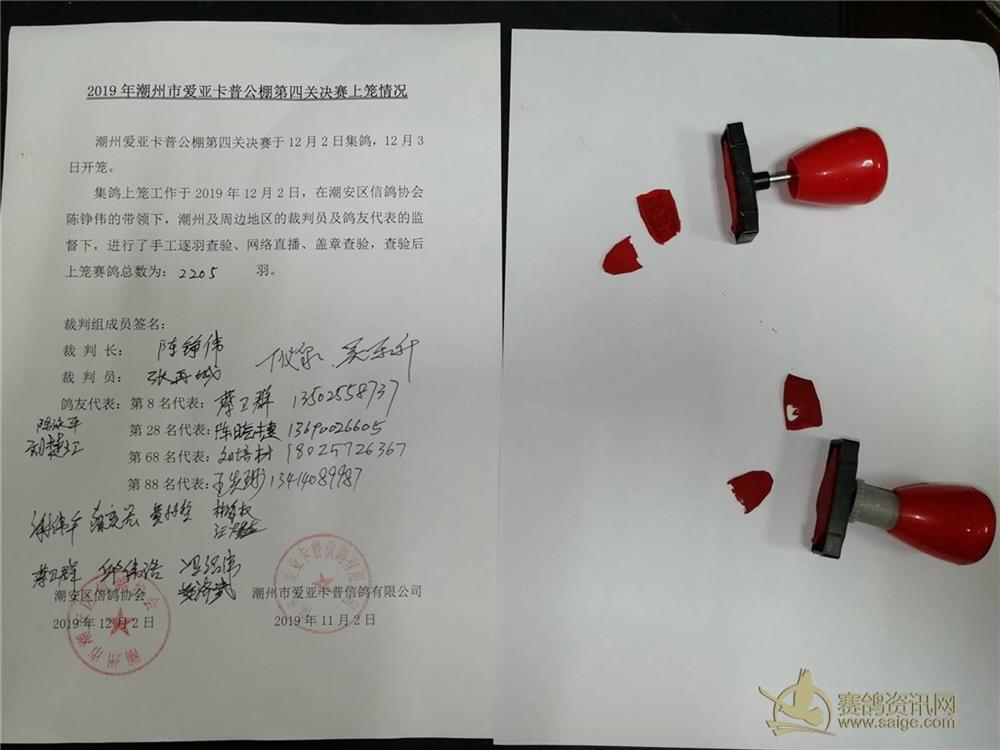 2019年潮州市爱亚卡普公棚第四关决赛上笼情况
潮州爱亚卡普公棚第四关决赛于12月2日集鸽，12月3
日开笼。
集鸽上笼工作于2019年12月2日，在潮安区信鸽协会
陈铮伟的带领下，潮州及周边地区的裁判员及鸽友代表的监
督下，进行了手工逐羽查验、网络直播、盖章查验，查验后
上笼赛鸽总数为：2205 羽。
裁判组成员签名：
裁 判 长： 陈铮伟
裁 判 员： 张再城
鸽友代表：第8名代表：蔡卫群 13502558737
第28名代表：陈晓捷 13690026605
第68名代表：刘培材 18025726367
第88名代表： 13414089987
蔡卫群 邱伟浩 冯强伟
潮安区信鸽协会
潮州市爱亚卡普信鸽有限公司
2019年12月2日
2019年11月2日
潮州市潮安区信鸽协会
赛鸽资讯网
www.saige.com